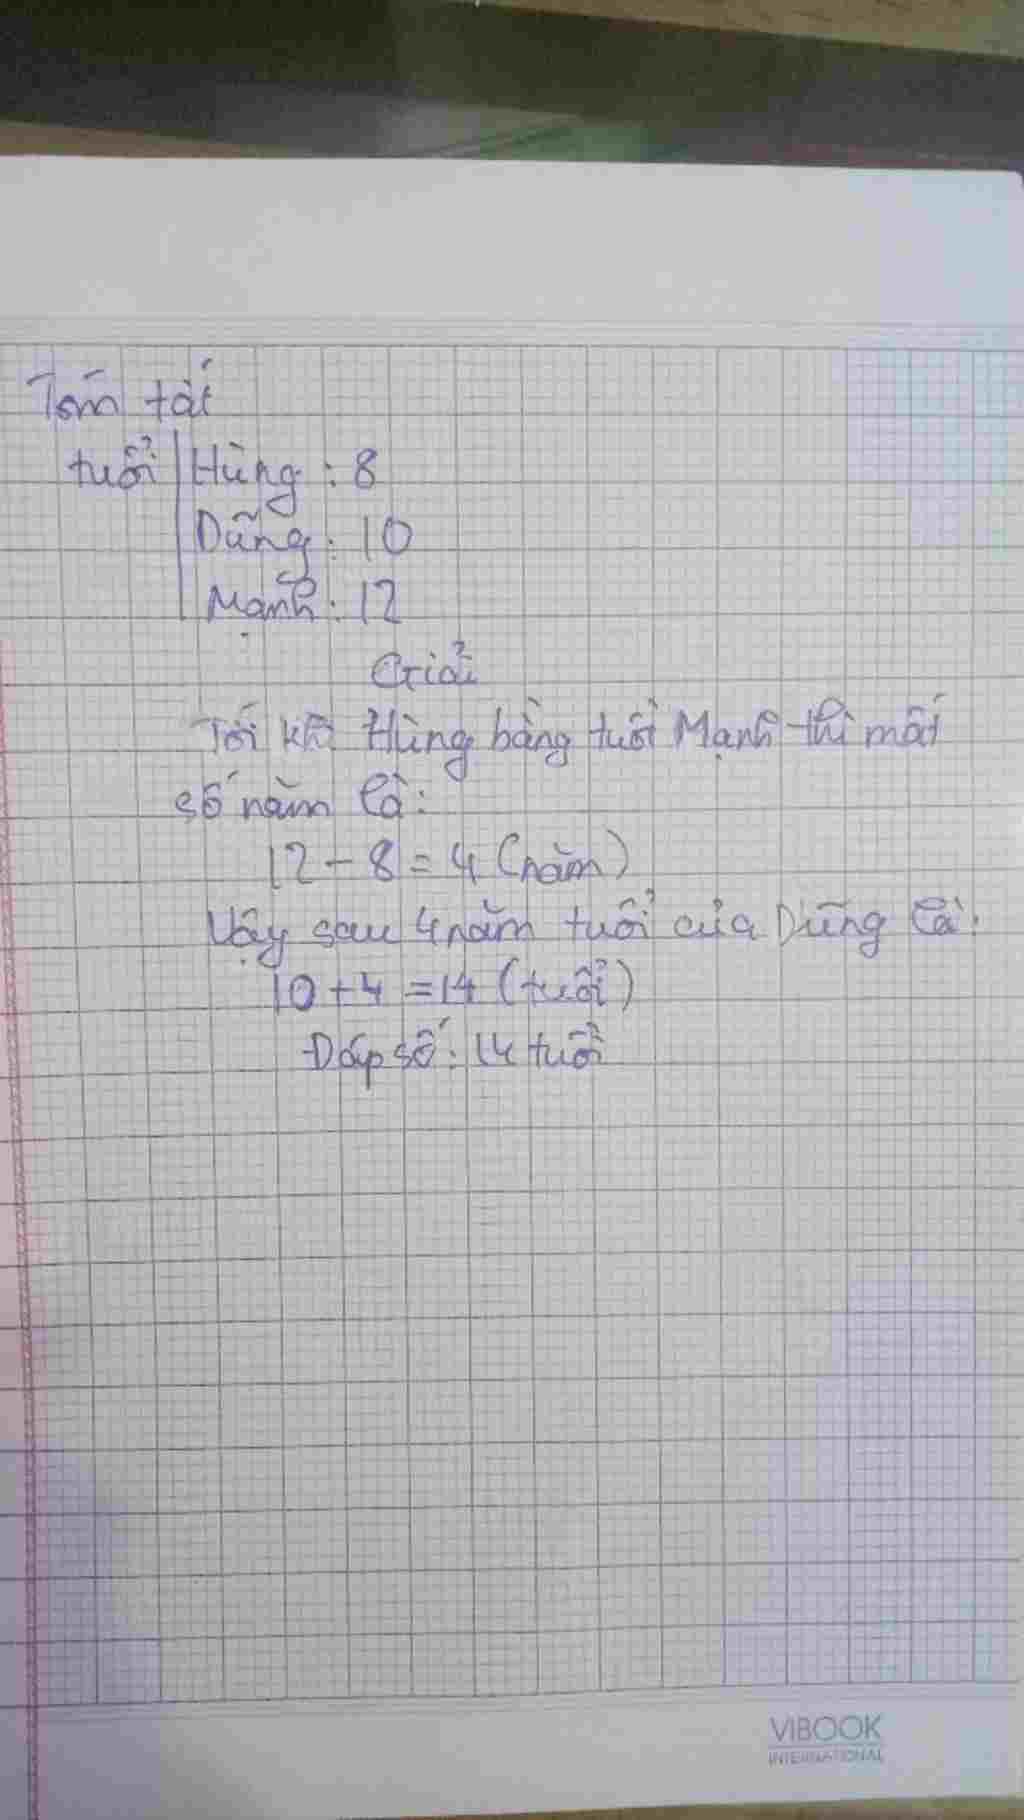 Tóm tắt
tuổi Hùng: 8
Dũng: 10
Mạnh: 12
Giải
Tới khi Hùng bằng tuổi Mạnh thì mất
số năm là:
12 - 8 = 4 (năm)
Vậy sau 4 năm tuổi của Dũng là:
10 + 4 = 14 (tuổi)
Đáp số: 14 tuổi
VIBOOK
INTERNATIONAL